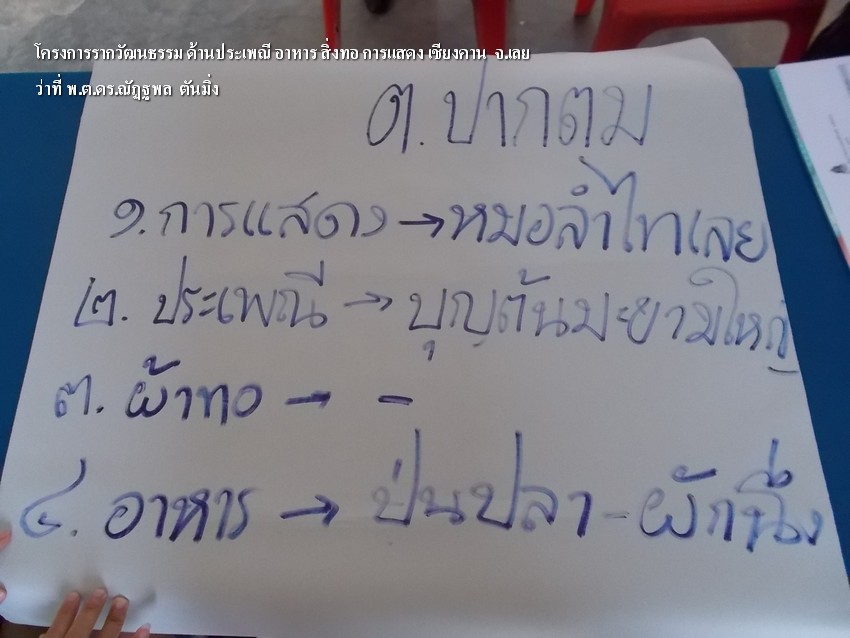 โครงการรากวัฒนธรรม ด้านประเพณี อาหาร สิ่งทอ การแสดง เชียงคาน จ.เลย
ว่าที่ พ.ต.ดร.ณัฏฐพล ตันมิ่ง
ต. ปากตม
๑. การแสดง → หมอลำไทเลย
๒. ประเพณี → บุญต้นมะยามใหญ่
๓. ผ้าทอ → -
๔. อาหาร → ป่นปลา - ผักนึ่ง